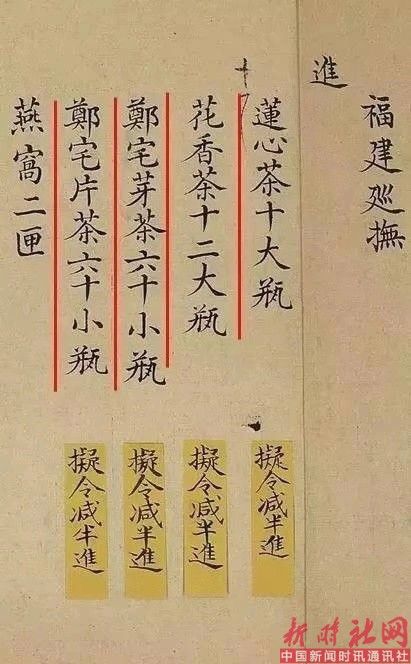 福建廵撫
進
蓮心茶十大瓶
花香茶十二大瓶
鄭宅芽茶六十小瓶
鄭宅片茶六十小瓶
燕窩二匣
擬令减半進
擬令减半進
擬令减半進
擬令减半進
新时社网
中国新闻时讯通讯社